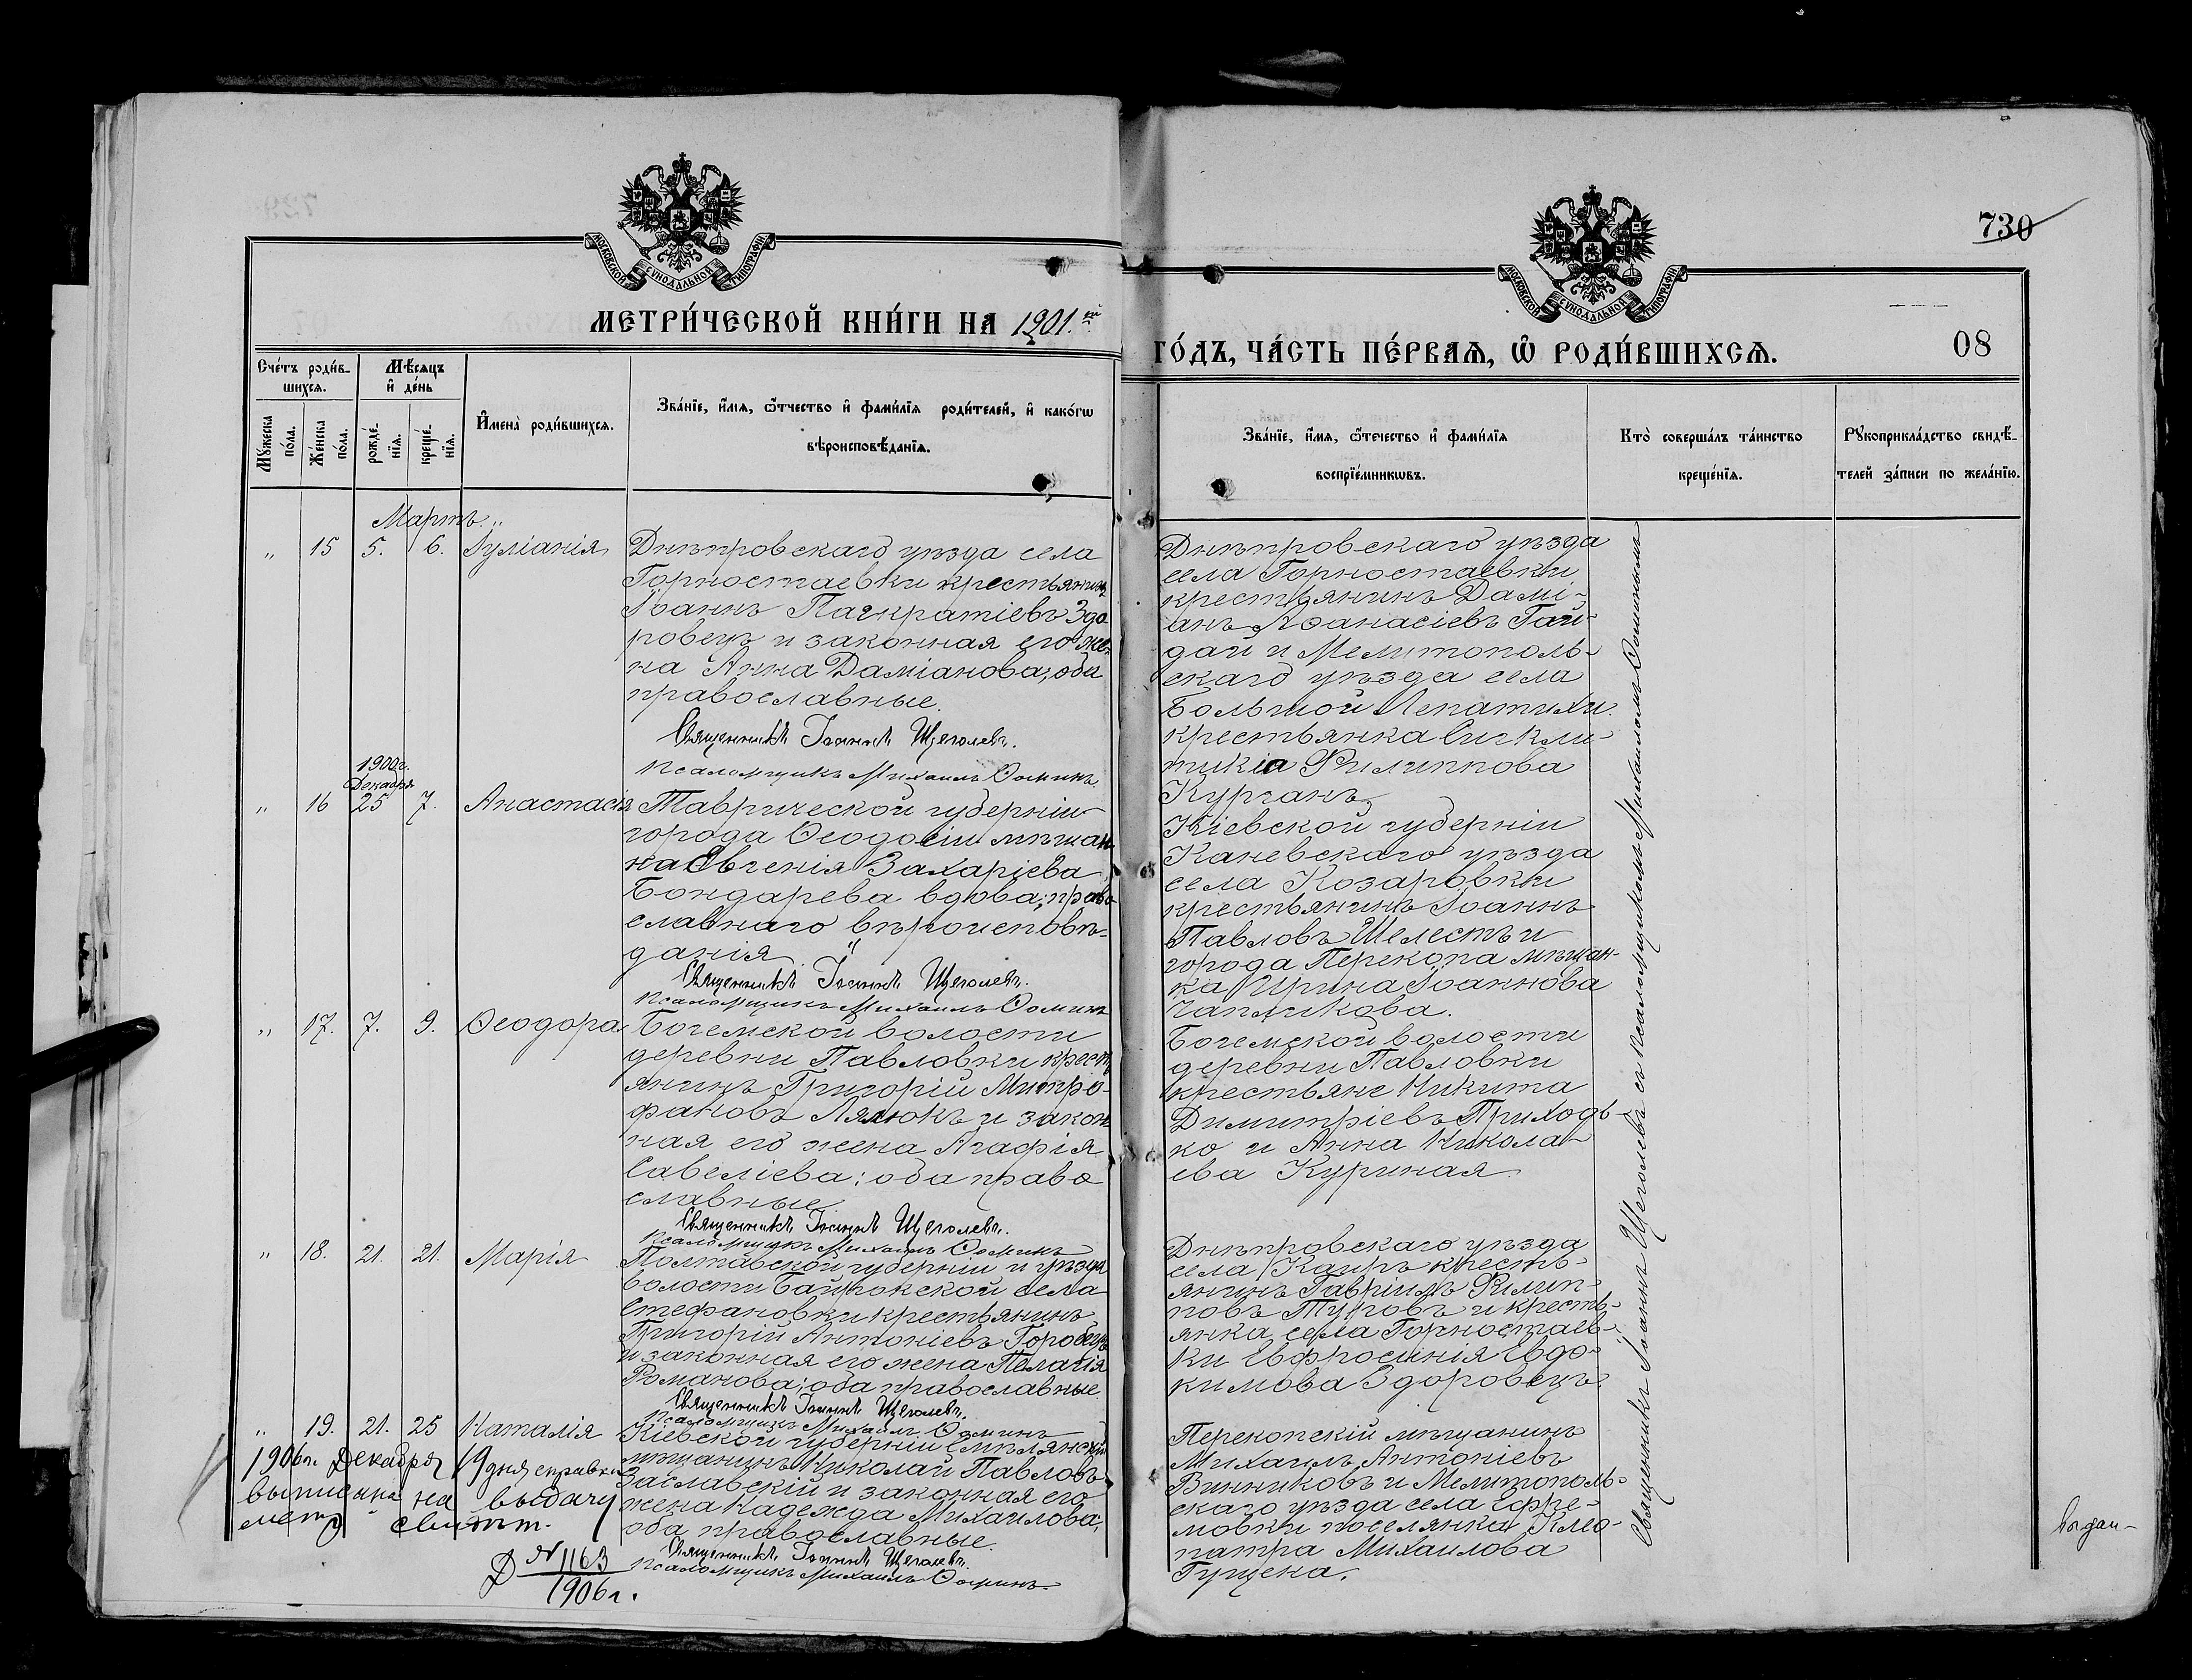 730
МОСКОВСКОЙ СѴНОДАЛЬНОЙ ТИПОГРАФІИ
МОСКОВСКОЙ СѴНОДАЛЬНОЙ ТИПОГРАФІИ
МЕТРИ́ЧЕСКОЙ КНИ́ГИ НА 1901.ый
ГО́ДЪ, ЧА́СТЬ ПЕ́РВАЯ, Ѡ РОДИ́ВШИХСЯ.
08
Сче́тъ роди́в-
шихся.
Мѣсяцъ
и де́нь
Мꙋжеска
по́ла.
Же́нска
по́ла.
рожде́-
нїя.
креще́-
нїя.
Имена̀ роди́вшихся.
Зва́нїе, и́мя, ѻ҆́тчество и фами́лїя роди́телей, и како́гѡ
вѣроисповѣ́данїя.
Зва́нїе, и́мя, ѻ҆́течество и фами́лїя
воспрїе́мникѡвъ.
Кто̀ соверша́лъ та́инство
креще́нїя.
Рꙋкоприкла́дство свидѣ́-
телей за́писи по жела́нїю.
Мартъ.
" 15 5. 6. Іуліанія
Днѣпровскаго уѣзда села
Горностаевки крестьянинъ
Іоаннъ Панкратіевъ Здо
ровецъ и законная его же-
на Анна Даміанова; оба
православные.
Священникъ Іоаннъ Щеголевъ.
Псаломщикъ Михаилъ Ѳоминъ.
Днѣпровскаго уѣзда
села Горностаевки
крестьянинъ Дамі-
анъ Аѳанасіевъ Гай-
дай и Мелитополь-
скаго уѣзда села
Большой Лепатихи
крестьянка Сикли-
тикіа Филиппова
Курганъ
1900г.
Декабря
" 16 25 7. Анастасія
Таврической губерніи
города Ѳеодосіи мѣщан
ка Евгенія Захаріева
Бондарева вдова; право
славнаго вѣроисповѣ-
данія."
Священникъ Іоаннъ Щеголевъ.
Псаломщикъ Михаилъ Ѳоминъ
Кіевской губерніи
Каневскаго уѣзда
села Козаровки
крестьянинъ Іоаннъ
Павловъ Шелестъ и
города Перекопа мѣщан-
ка Ирина Іоаннова
Чапликова.
" 17. 7. 9. Ѳеодора
Богемской волости
деревни Павловки крест
янинъ Григорій Митро-
фановъ Лялюкъ и закон
ная его жена Агафія
Савеліева; оба право
славные.
Священникъ Іоаннъ Щеголевъ.
Псаломщикъ Михаилъ Ѳоминъ
Богемской волости
деревни Павловки
крестьяне Никита
Димитріевъ Приходь-
ко и Анна Никола-
ева Куриная
" 18. 21. 21. Марія
Полтавской губерніи и уѣзда
волости Байракской села
Стефановки крестьянинъ
Григорій Антоніевъ Горовецъ
и законная его жена Пелагія
Романова; оба православные.
Священникъ Іоаннъ Щеголевъ.
Псаломщикъ Михаилъ Ѳоминъ
Днѣпровскаго уѣзда
села Каиръ кресть-
янинъ Гавріилъ Филип-
повъ Туровъ и кресть-
янка села Горностаев-
ки Евфросинія Евдо-
кимова Здоровецъ.
" 19. 21. 25 Наталія
Кіевской губерніи Смѣлянскій
мѣщанинъ Николай Павловъ
Заславскій и законная его
жена Надежда Михаилова;
оба православные.
Священникъ Іоаннъ Щеголевъ.
Псаломщикъ Михаилъ Ѳоминъ.
Перекопскій мѣщанинъ
Михаилъ Антоніевъ
Винниковъ и Мелитополь-
скаго уѣзда села Ефре-
мовки поселянка Клео-
патра Михаилова
Гущека.
1906г. Декабря 19 дня справка
выписана на выдачу
метр свит.
Д № 1163
1906г.
Священникъ Іоаннъ Щеголевъ съ псаломщикомъ Михаиломъ Ѳоминымъ